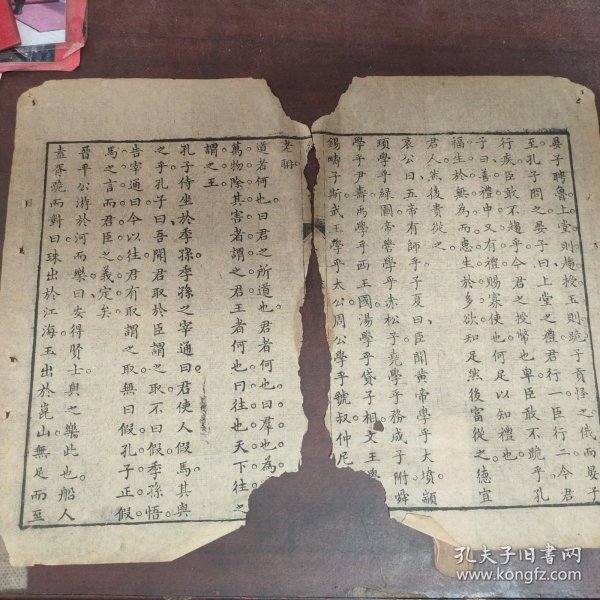 晏子聘魯上堂則趨授玉則跪子貢怪之俄而晏子
至孔子問之晏子曰上堂之禮君行一臣行二今君
行疾臣敢不趨乎今君之授幣也卑臣敢不跪乎孔
子曰善禮中又有禮賜寡使也何足以知禮也
福生於無為而患生於多欲知足然後富從之德宜
君人然後貴從之
哀公曰五帝有師乎子夏曰臣聞黃帝學乎大墳顓
頊學乎綠圖帝嚳學乎赤松子堯學乎務成子附舜
學乎尹壽禹學乎西王國湯學乎貸子相文王學
錫疇子斯武王學乎太公周公學乎虢叔仲尼
老聃
道者何也曰君之所道也君者何也曰群也為
萬物除其害者謂之君王者何也曰往也天下往之
謂之王
孔子侍坐於季孫季孫之宰通曰君使人假馬其與
之乎孔子曰吾聞君取於臣謂之取不曰假季孫悟
告宰通曰今以往君有取謂之取無曰假孔子正假
馬之言而君臣之義定矣
晉平公游於河而樂曰安得賢士與之樂此也船人
盍胥跪而對曰珠出於江海玉出於崑山無足而至
孔夫子旧书网
www.kongfz.com